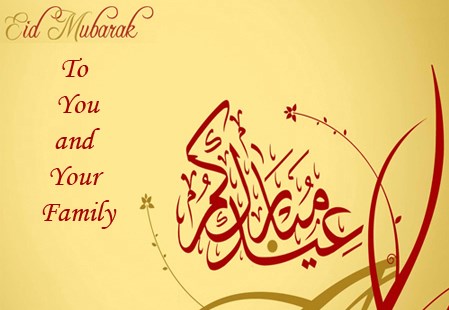 Eid Mubarak
To
You
and
Your
Family
عيدكم مبارك